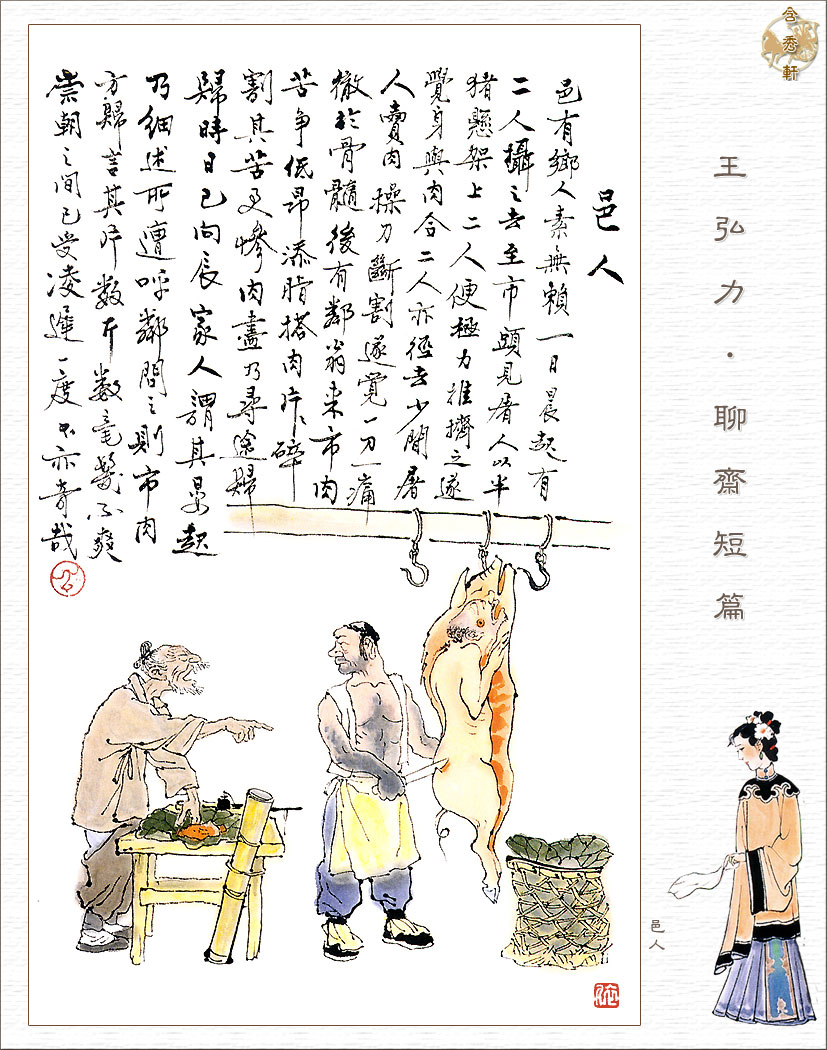 含秀軒
王弘力·聊齋短篇
邑人
邑有鄉人素無賴一日晨起有
二人攝之去至市頭見屠人以半
猪懸架上二人便極力推擠之遂
覺身與肉合二人亦徑去少間屠
人賣肉操刀斷割遂覺一刀一痛
徹於骨髓後有鄰翁來市肉
苦争低昂添脂搭肉片碎
割其苦更慘肉盡乃尋途歸
歸時日已向辰家人謂其晏起
乃細述所遭呼鄰問之則市肉
方歸言其片数斤数毫髮不爽
崇朝之间已受凌遲一度不亦奇哉
邑人